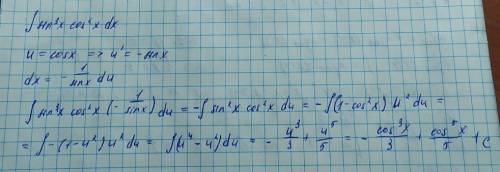 ∫ sin³x cos²x dx
u = cosx => u' = -sinx
dx = - 1/sinx du
∫ sin³x cos²x (- 1/sinx) du = -∫ sin²x cos²x du = -∫(1-cos²x) u² du =
= ∫ -(1-u²) u² du = ∫(u⁴ - u²) du = - u³/3 + u⁵/5 = - cos³x/3 + cos⁵x/5 + C